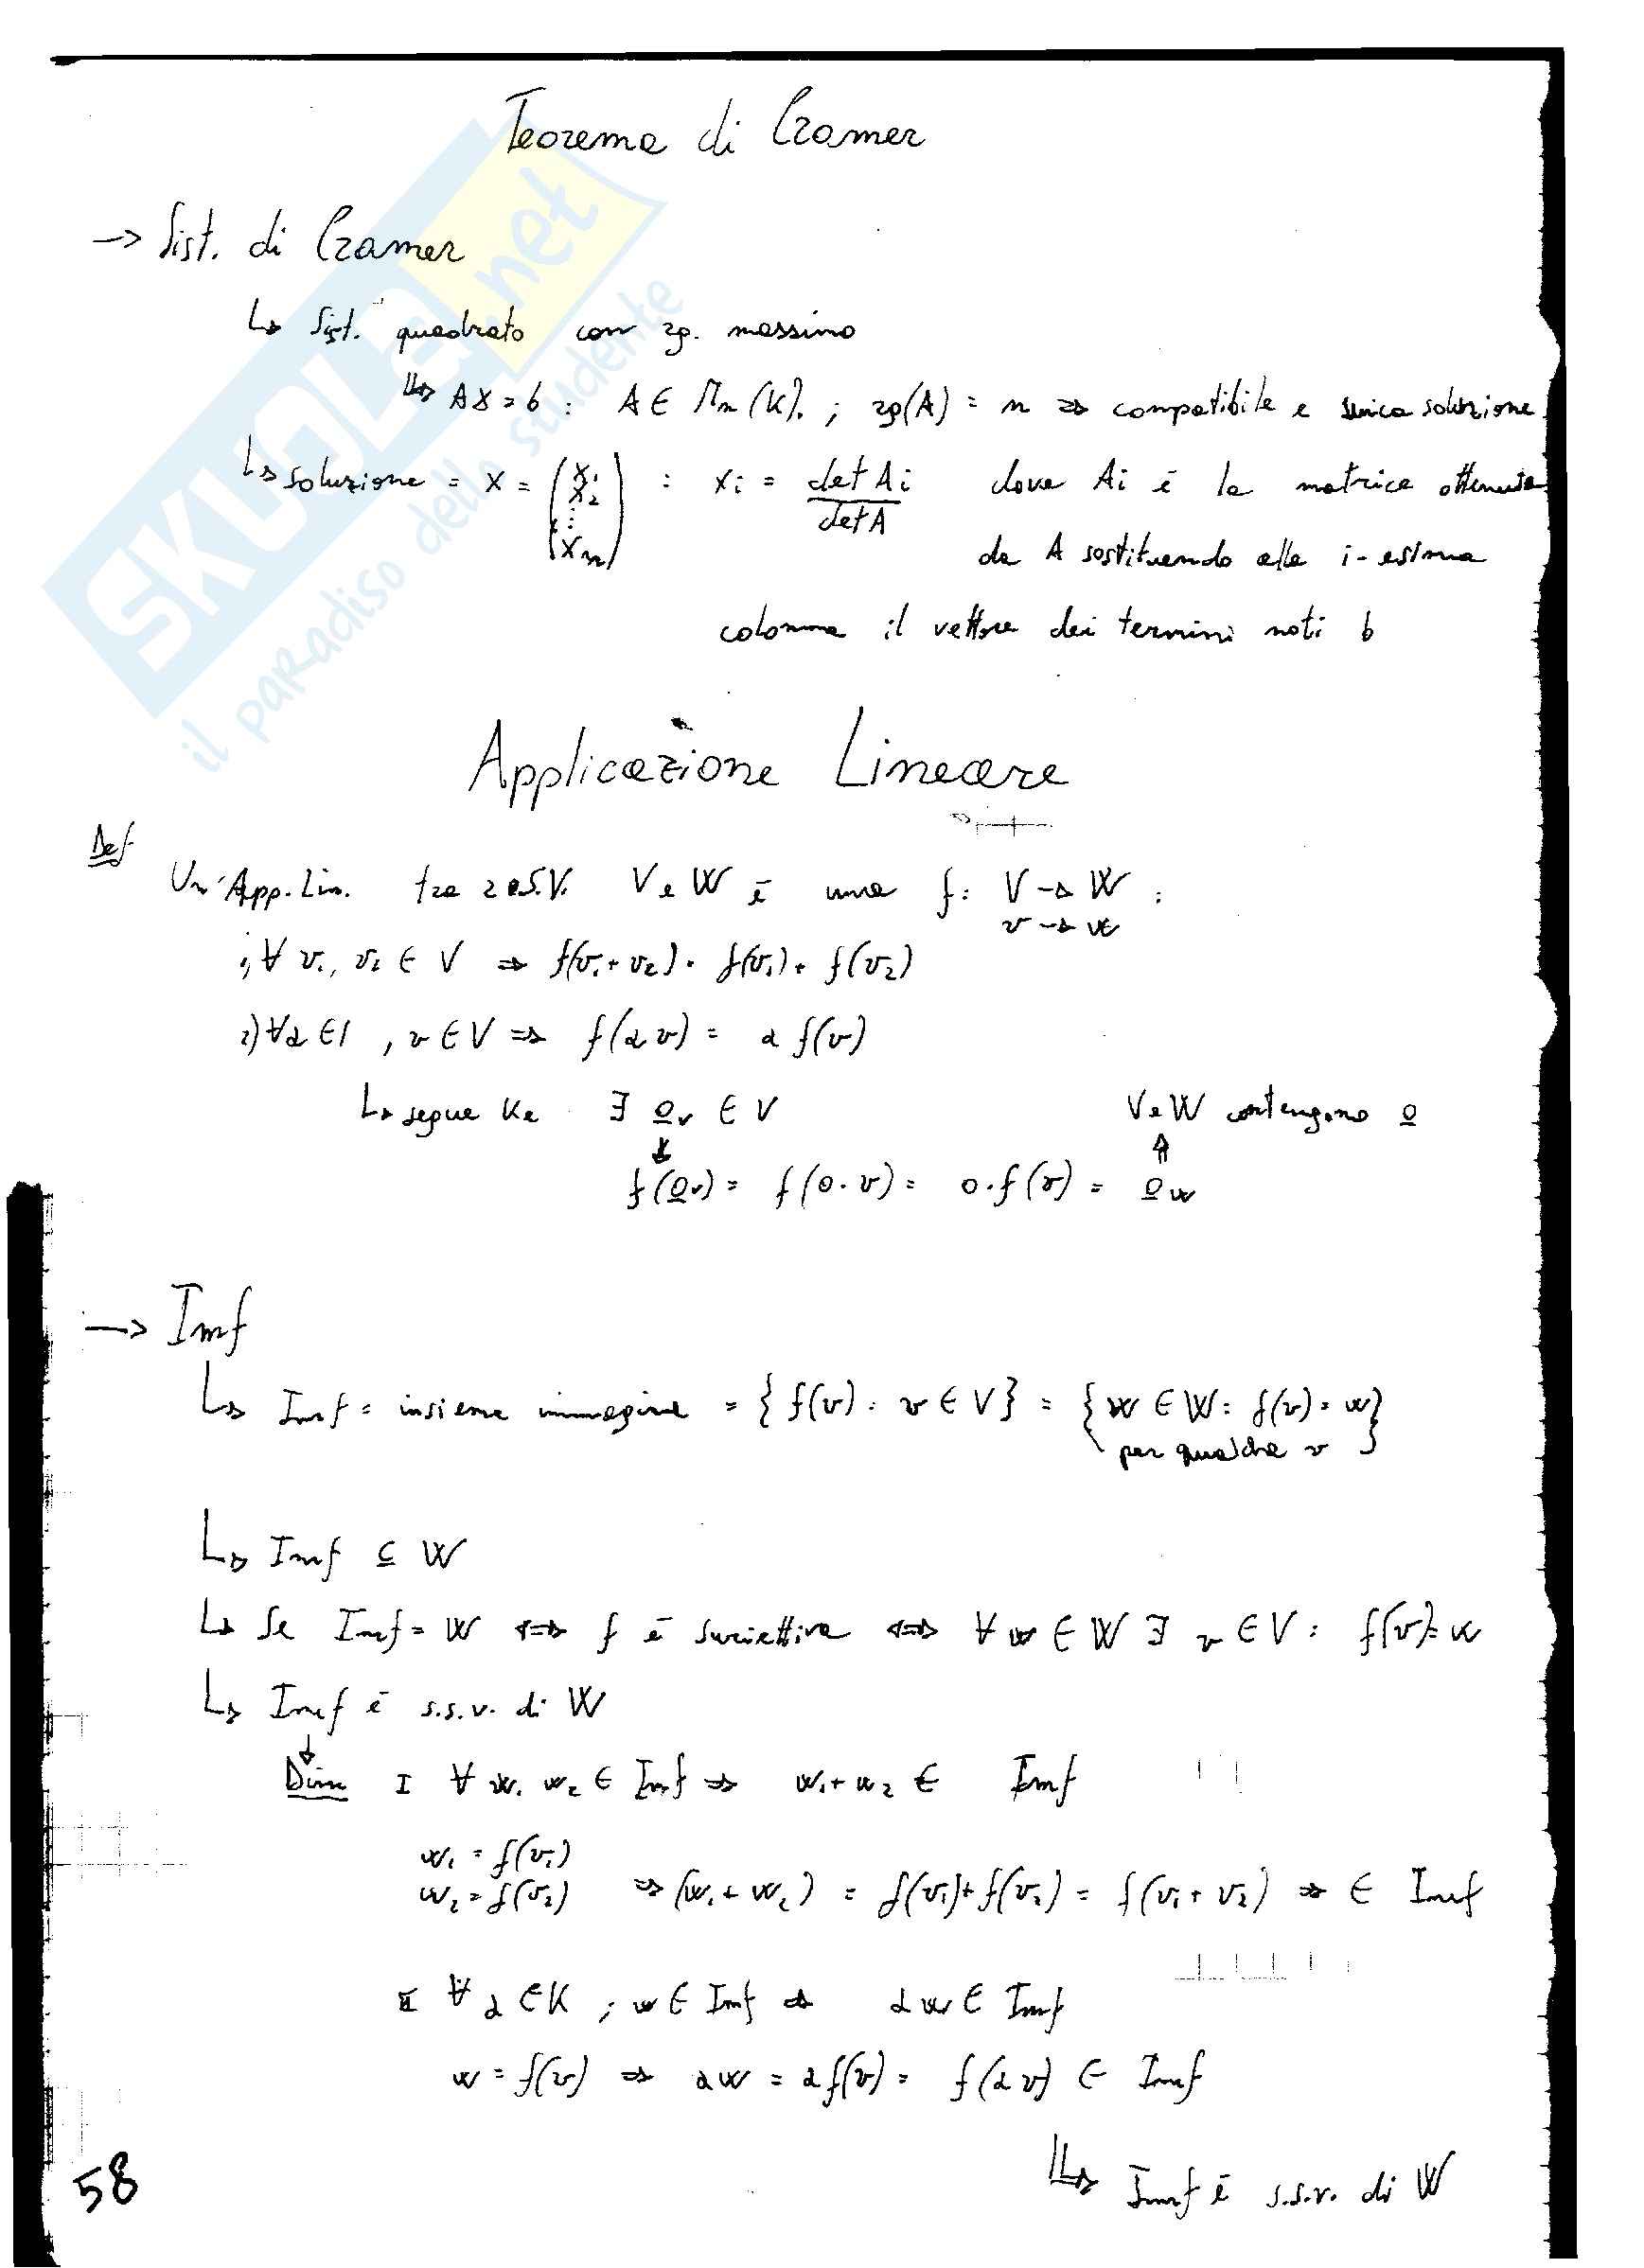 Teorema di Cramer
→ Sist. di Cramer
↳ Sist. quadrato con rg. massimo
↳ AX = b : A ∈ Mn(K). ; rg(A) = n ⇒ compatibile e unica soluzione
↳ soluzione = X = (x1 x2 ⋮ xn) : xi = det Ai / det A dove Ai è la matrice ottenuta
da A sostituendo alla i-esima
colonna il vettore dei termini noti b
Applicazione Lineare
Def
Un'App. Lin. tra 2 S.V. V e W è una f: V → W :
v → w
1) ∀ v1, v2 ∈ V ⇒ f(v1 + v2) = f(v1) + f(v2)
2) ∀α ∈ , v ∈ V ⇒ f(αv) = α f(v)
↳ segue ∃ 0v ∈ V V e W contengono 0
f(0v) = f(0·v) = 0·f(v) = 0w
→ Imf
↳ Imf = insieme immagine = {f(v) : v ∈ V} = {w ∈ W : f(v) = w
per qualche v}
↳ Imf ⊆ W
↳ Se Imf = W ⇔ f è suriettiva ⇔ ∀ w ∈ W ∃ v ∈ V : f(v) = w
↳ Imf è s.s.v. di W
Dim I ∀ w1 w2 ∈ Imf ⇒ w1 + w2 ∈ Imf
w1 = f(v1)
w2 = f(v2) ⇒ (w1 + w2) = f(v1) + f(v2) = f(v1 + v2) ⇒ ∈ Imf
II ∀ α ∈ K ; w ∈ Imf ⇒ αw ∈ Imf
w = f(v) ⇒ αw = αf(v) = f(αv) ∈ Imf
↳ Imf è s.s.v. di W
58
SKUOLA.net
il paradiso dello studente